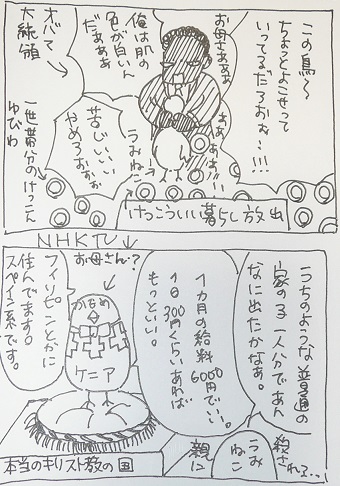 この鳥〜
ちょっとよこせって
いってるだろおぉ〜!!!
お母さあああ
ああ
ああ!!!
俺は肌の
色が白いん
だぁぁぁ
オバマ
大統領
うみねこ
苦じいいい
やめろおぉぉ
一世帯分のけっこん
ゆびわ
けっこういい暮らし放出
NHK
うちのような普通の
家の3、一人分であん
なに出たかなぁ。
殺される…
うみ
ねこ
親に
1ヵ月の給料6000円でいい。
1日300円くらいあれば
もっといい。
お母さん?
かもめ
ケニア
フィリピンとかに
住んでます。
スペイン系です。
本当のキリスト教の国